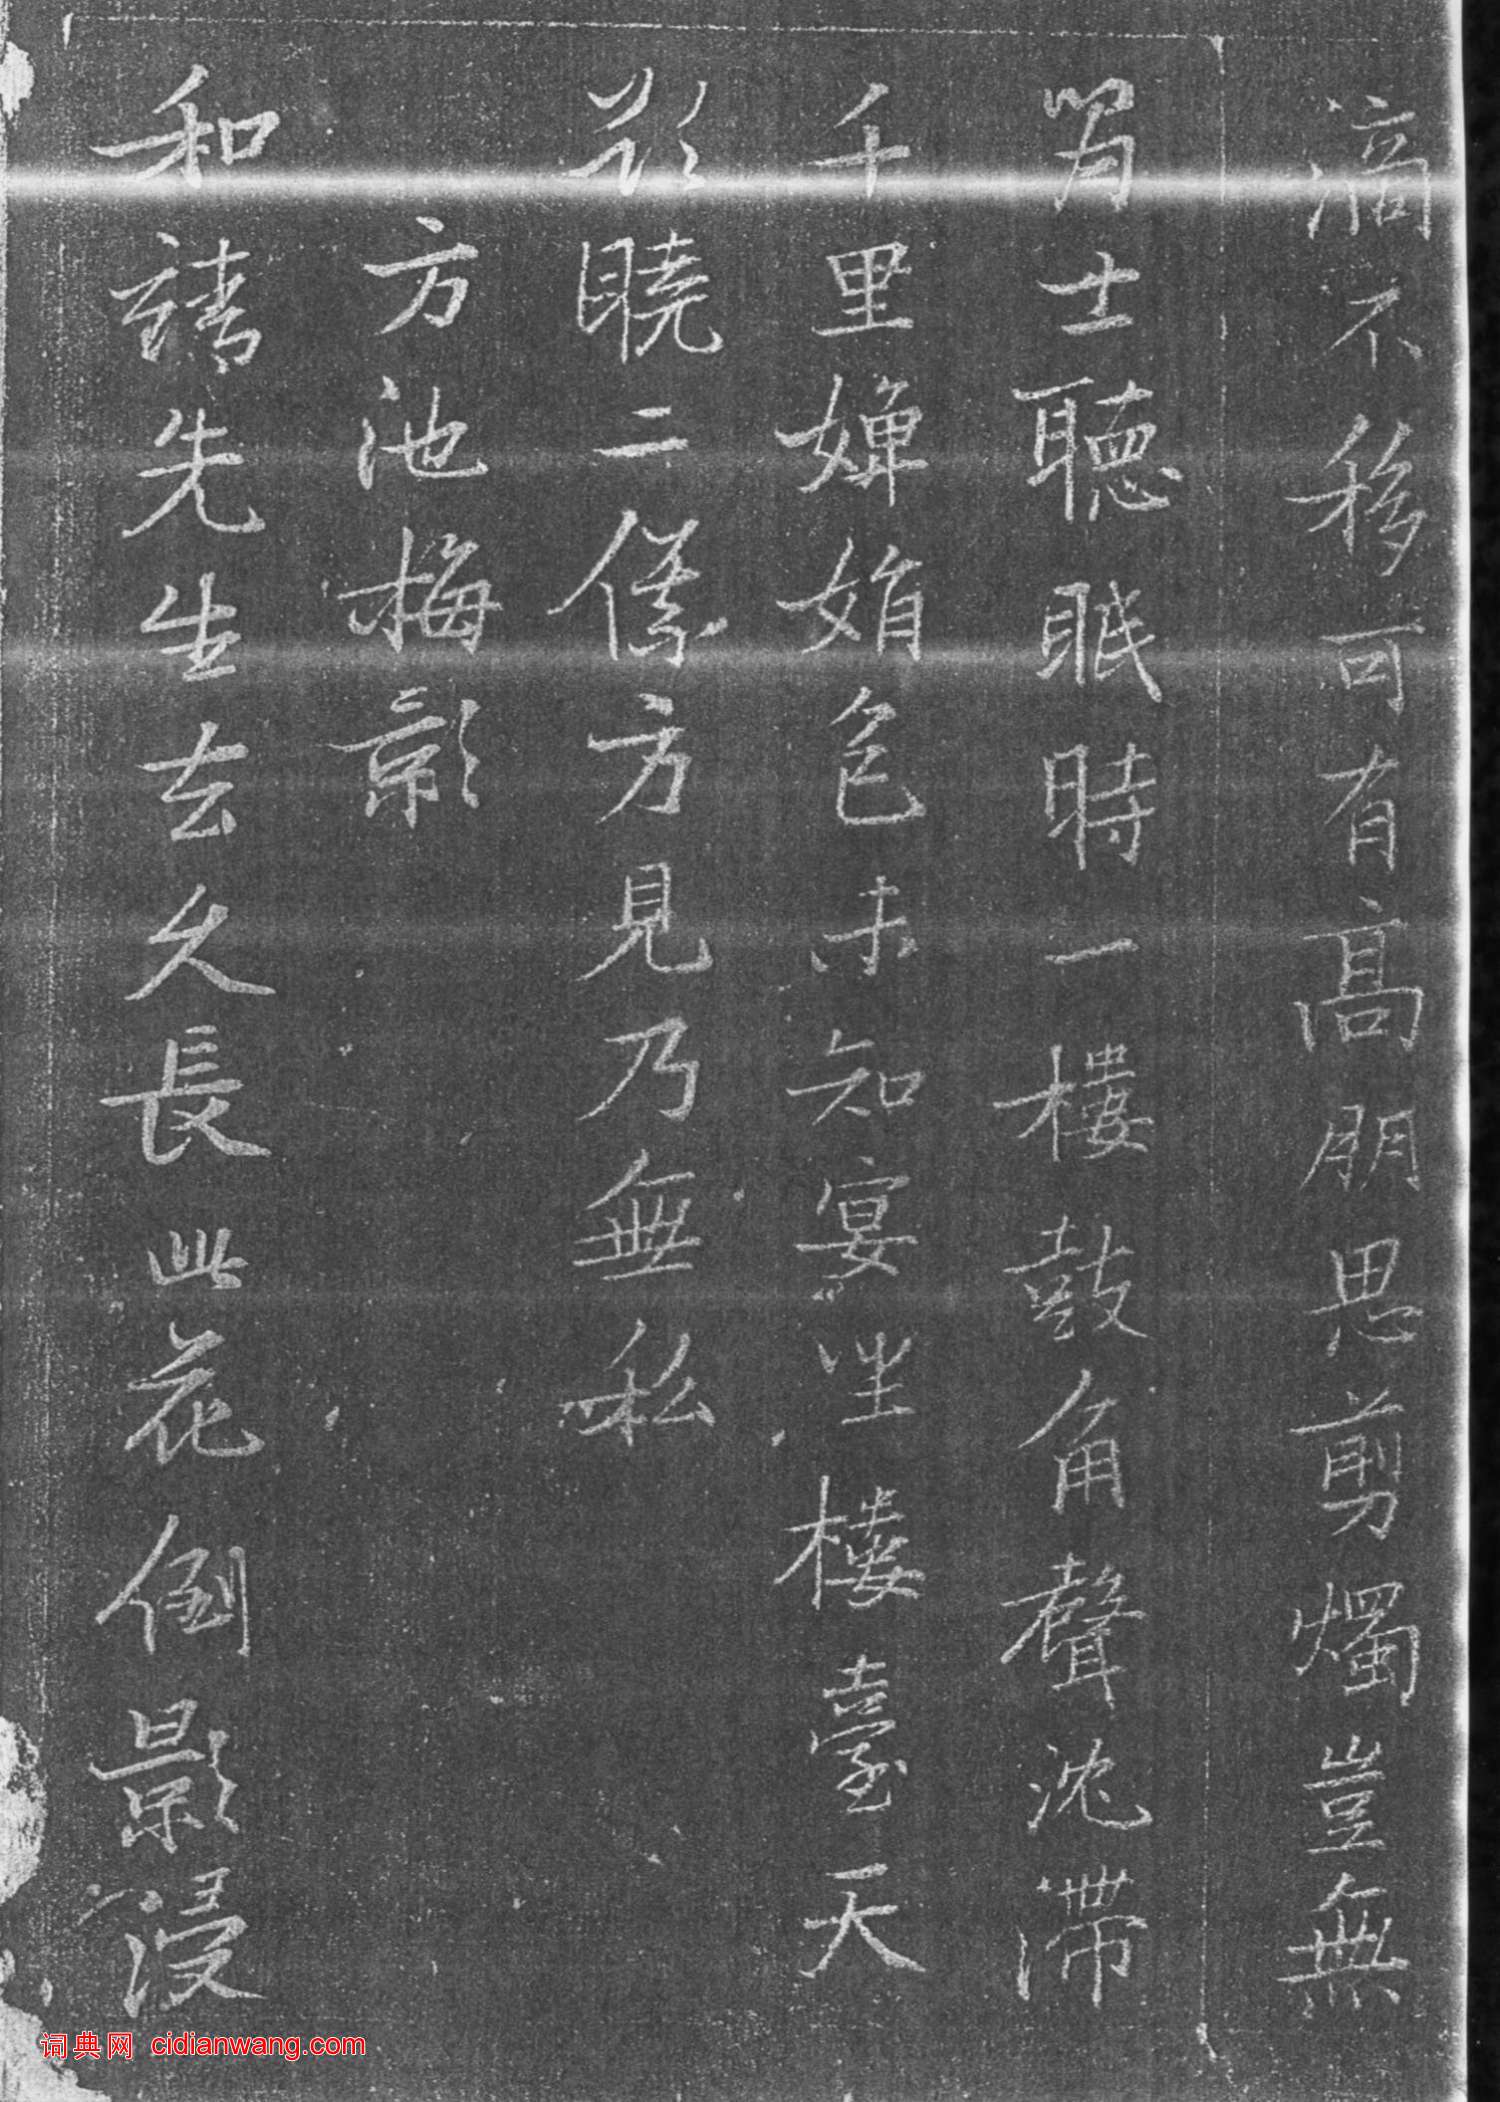 滴不移可有高朋思剪燭豈無
胃士聽眠時一樓鼓角聲沈滯
千里嬋娟色未知宴坐樓臺天
欲曉二儀方見乃無私
方池梅影
和靖先生去久長此花倒影浸
词典网 cidianwang.com